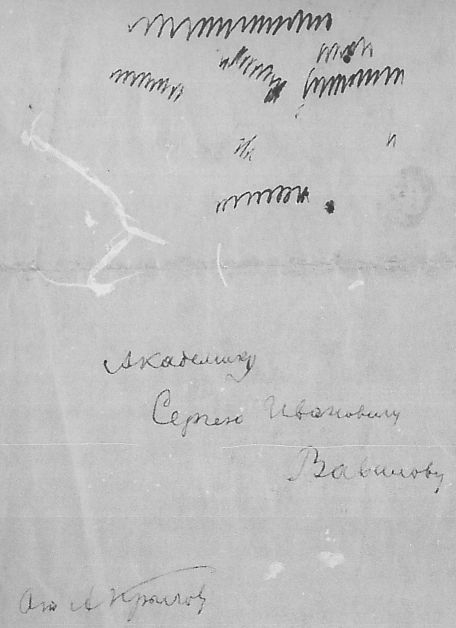 Академику
Сергею Ивановичу
Вавилову
От А Крылов